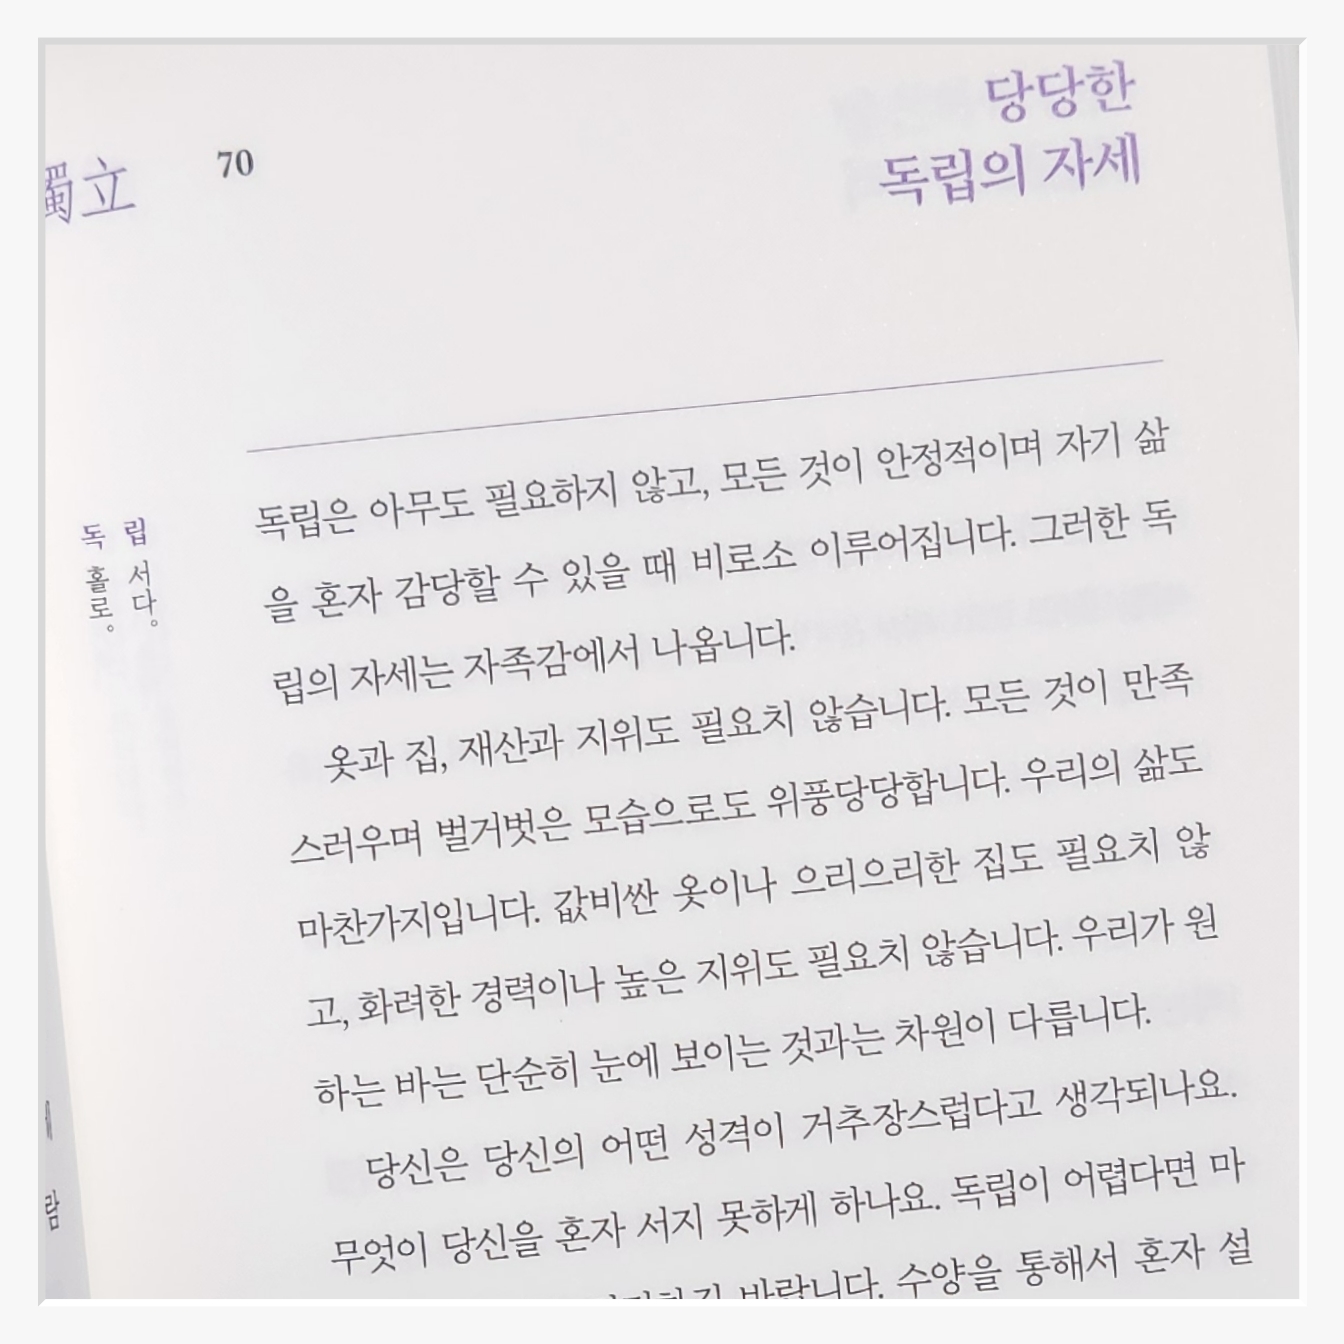 獨立
70
당당한
독립의 자세
독 홀로。
립 서다。
독립은 아무도 필요하지 않고, 모든 것이 안정적이며 자기 삶
을 혼자 감당할 수 있을 때 비로소 이루어집니다. 그러한 독
립의 자세는 자족감에서 나옵니다.
옷과 집, 재산과 지위도 필요치 않습니다. 모든 것이 만족
스러우며 벌거벗은 모습으로도 위풍당당합니다. 우리의 삶도
마찬가지입니다. 값비싼 옷이나 으리으리한 집도 필요치 않
고, 화려한 경력이나 높은 지위도 필요치 않습니다. 우리가 원
하는 바는 단순히 눈에 보이는 것과는 차원이 다릅니다.
당신은 당신의 어떤 성격이 거추장스럽다고 생각되나요.
무엇이 당신을 혼자 서지 못하게 하나요. 독립이 어렵다면 마
바랍니다. 수양을 통해서 혼자 설
람